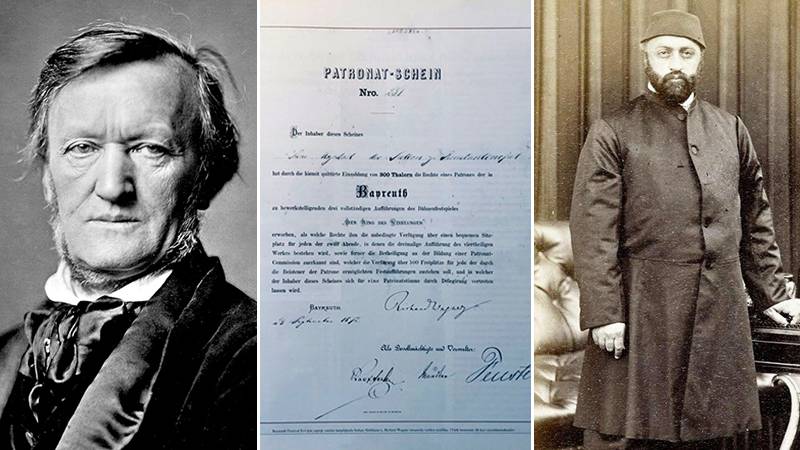 PATRONAT-SCHEIN
Nro. 231
Der Inhaber dieses Scheines
Seine Majestät der Sultan zu Konstantinopel
hat durch die hiemit quittirte Einzahlung von 300 Thalern die Rechte eines Patrones der in
Bayreuth
zu bewerkstelligenden drei vollständigen Aufführungen des Bühnenfestspieles
"DER RING DES NIBELUNGEN"
erworben, als welche Rechte ihm die unbedingte Verfügung über einen bequemen Sitz-
platz für jeden der zwölf Abende, in denen die dreimalige Aufführung des viertheiligen
Werkes bestehen wird, sowie ferner die Betheiligung an der Bildung einer Patronat-
Commission zuerkannt sind, welcher die Verfügung über 500 Freiplätze für jede der durch
die Beisteuer der Patrone ermöglichten Festaufführungen zustehen soll, und in welcher
der Inhaber dieses Scheines sich für eine Patronatstimme durch Delegirung vertreten
lassen wird.
BAYREUTH
Richard Wagner
September 187
Als Bevollmächtigte und Verwalter:
Feustel